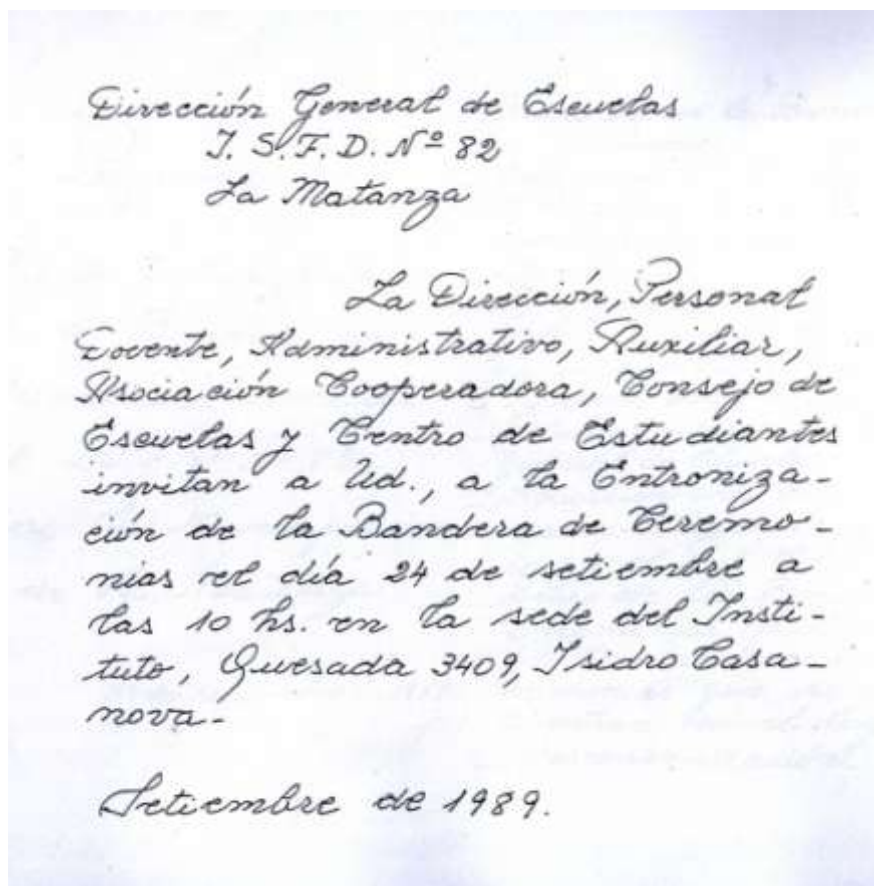 Dirección General de Escuelas
I. S. F. D. Nº 82
La Matanza
La Dirección, Personal
Docente, Administrativo, Auxiliar,
Asociación Cooperadora, Consejo de
Escuelas y Centro de Estudiantes
invitan a Ud., a la Entroniza-
ción de la Bandera de Ceremo-
nias el día 24 de setiembre a
las 10 hs. en la sede del Insti-
tuto, Quesada 3409, Isidro Casa-
nova.
Setiembre de 1989.